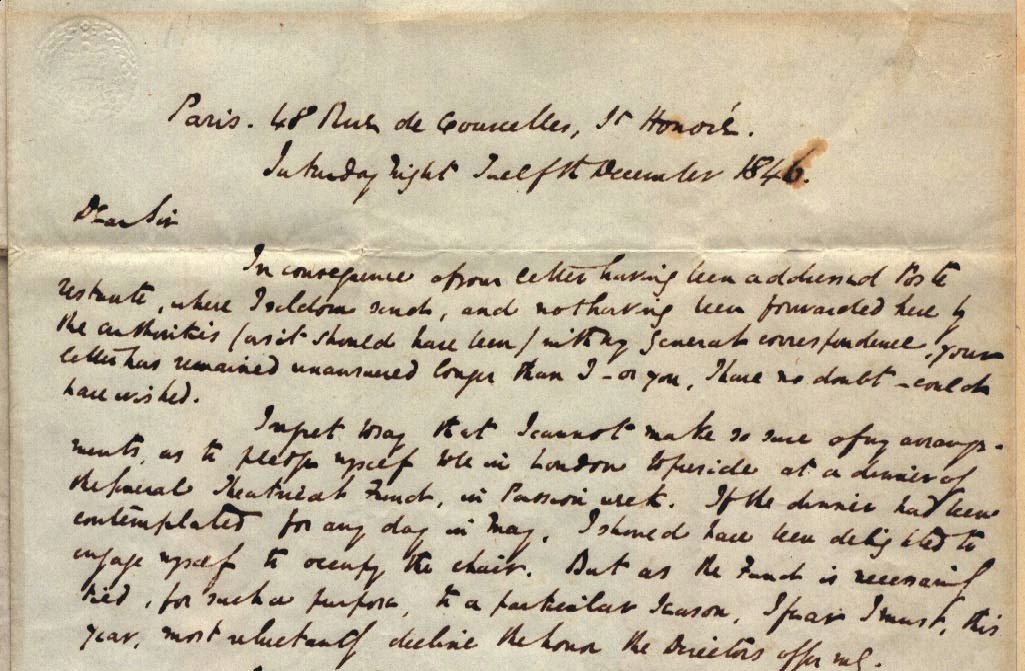 Paris. 48 Rue de Courcelles, St Honoré.
Saturday Night Twelfth December 1846.
Dear Sir
In consequence of your letter having been addressed Poste
restante, where I seldom send, and not having been forwarded here by
the authorities (as it should have been) with my general correspondence, your
letter has remained unanswered longer than I - or you, I have no doubt - could
have wished.
I regret to say that I cannot make so sure of my arrange-
ments, as to pledge myself to be in London to preside at a dinner of
the General Theatrical Fund, in Passion week. If the dinner had been
contemplated for any day in May, I should have been delighted to
engage myself to occupy the chair. But as the Fund is necessarily
tied, for such a purpose, to a particular season, I fear I must, this
year, most reluctantly decline the honor the Directors offer me.